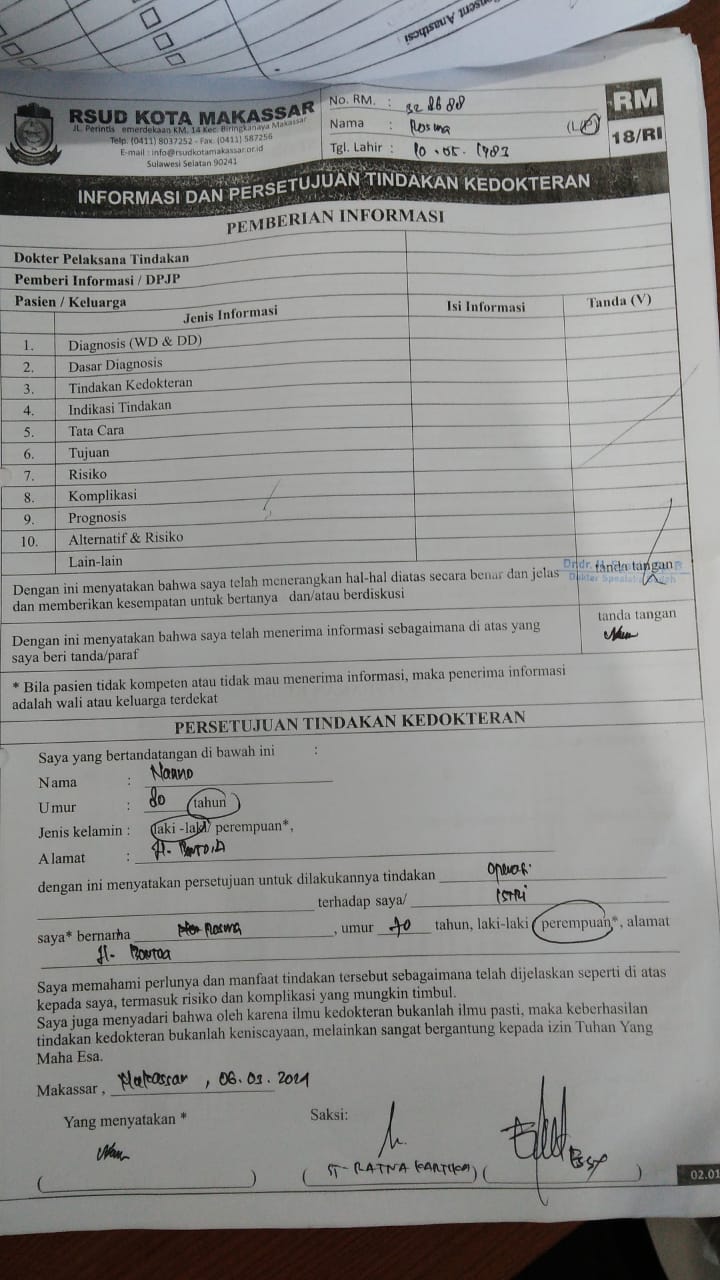 Consent Anasthesi
RSUD KOTA MAKASSAR
JL. Perintis emerdekaan KM. 14 Kec. Biringkanaya Makassar
Telp. (0411) 8037252 - Fax. (0411) 587256
E-mail : info@rsudkotamakassar.or.id
Sulawesi Selatan 90241
No. RM. :
Nama : Rosma (L/P)
Tgl. Lahir : 10.05.1983
RM
18/RI
INFORMASI DAN PERSETUJUAN TINDAKAN KEDOKTERAN
PEMBERIAN INFORMASI
Dokter Pelaksana Tindakan
Pemberi Informasi / DPJP
Pasien / Keluarga
Jenis Informasi Isi Informasi Tanda (V)
1. Diagnosis (WD & DD)
2. Dasar Diagnosis
3. Tindakan Kedokteran
4. Indikasi Tindakan
5. Tata Cara
6. Tujuan
7. Risiko
8. Komplikasi
9. Prognosis
10. Alternatif & Risiko
Lain-lain
Dengan ini menyatakan bahwa saya telah menerangkan hal-hal diatas secara benar dan jelas
dan memberikan kesempatan untuk bertanya dan/atau berdiskusi
tanda tangan
Dokter Spesialis
Dengan ini menyatakan bahwa saya telah menerima informasi sebagaimana di atas yang
saya beri tanda/paraf
tanda tangan
* Bila pasien tidak kompeten atau tidak mau menerima informasi, maka penerima informasi
adalah wali atau keluarga terdekat
PERSETUJUAN TINDAKAN KEDOKTERAN
Saya yang bertandatangan di bawah ini :
Nama : Nanno
Umur : 80 tahun
Jenis kelamin : laki -laki/ perempuan*,
Alamat : Jl.
dengan ini menyatakan persetujuan untuk dilakukannya tindakan operasi
terhadap saya/ ISTRI
saya* bernama Rosma, umur 70 tahun, laki-laki perempuan*, alamat
Jl. Bontoa
Saya memahami perlunya dan manfaat tindakan tersebut sebagaimana telah dijelaskan seperti di atas
kepada saya, termasuk risiko dan komplikasi yang mungkin timbul.
Saya juga menyadari bahwa oleh karena ilmu kedokteran bukanlah ilmu pasti, maka keberhasilan
tindakan kedokteran bukanlah keniscayaan, melainkan sangat bergantung kepada izin Tuhan Yang
Maha Esa.
Makassar , Makassar , 06.03.2021
Yang menyatakan * Saksi:
( ) (ST-RATNA KARTIKA) ( )
02.01